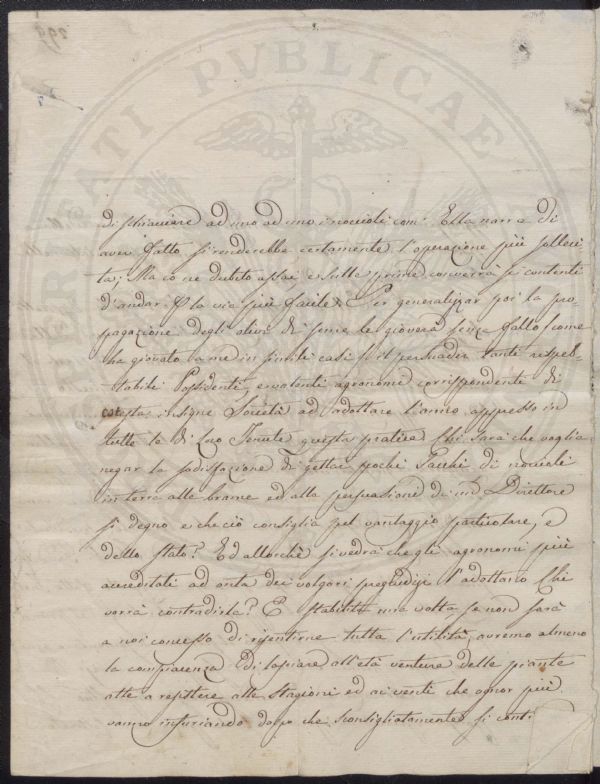 PVBLICAE
di schiacciare ad uno ad uno i noccioli com' Ella narra di
aver fatto si renderebbe certamente l'operazione più solleci
ta; Ma io ne dubito assai e sulle prime converrà si contenti
d'andar p la via più facile. Per generalizzar poi la pro-
pagazione degli olivi di seme le gioverà senza fallo (come
ha giovato a me in simili casi) il persuader tanti rispet-
tabili Possidenti, e valenti agronomi corrispondenti di
cotesta insigne Società ad adottare l'anno appresso in
tutte le di Loro Tenute questa pratica. Chi sarà che voglia
negar la sodisfazione di gettar pochi Sacchi di noccioli
in terra alle brame ed alla persuasioni di un Direttore
sì degno e che ciò consiglia pel vantaggio particolare, e
dello stato? Ed allorchè si vedrà che gli agronomi più
accreditati ad onta dei volgari pregiudizj l'adottano Chi
vorrà contradirla? E stabilita una volta se non sarà
a noi concesso di risentirne tutta l'utilità, avremo almeno
la compiacenza di lasciare all'età venture delle piante
atte a resistere alle stagioni ed ai venti che ognor più
vanno infuriando dopo che sconsigliatamente si conti